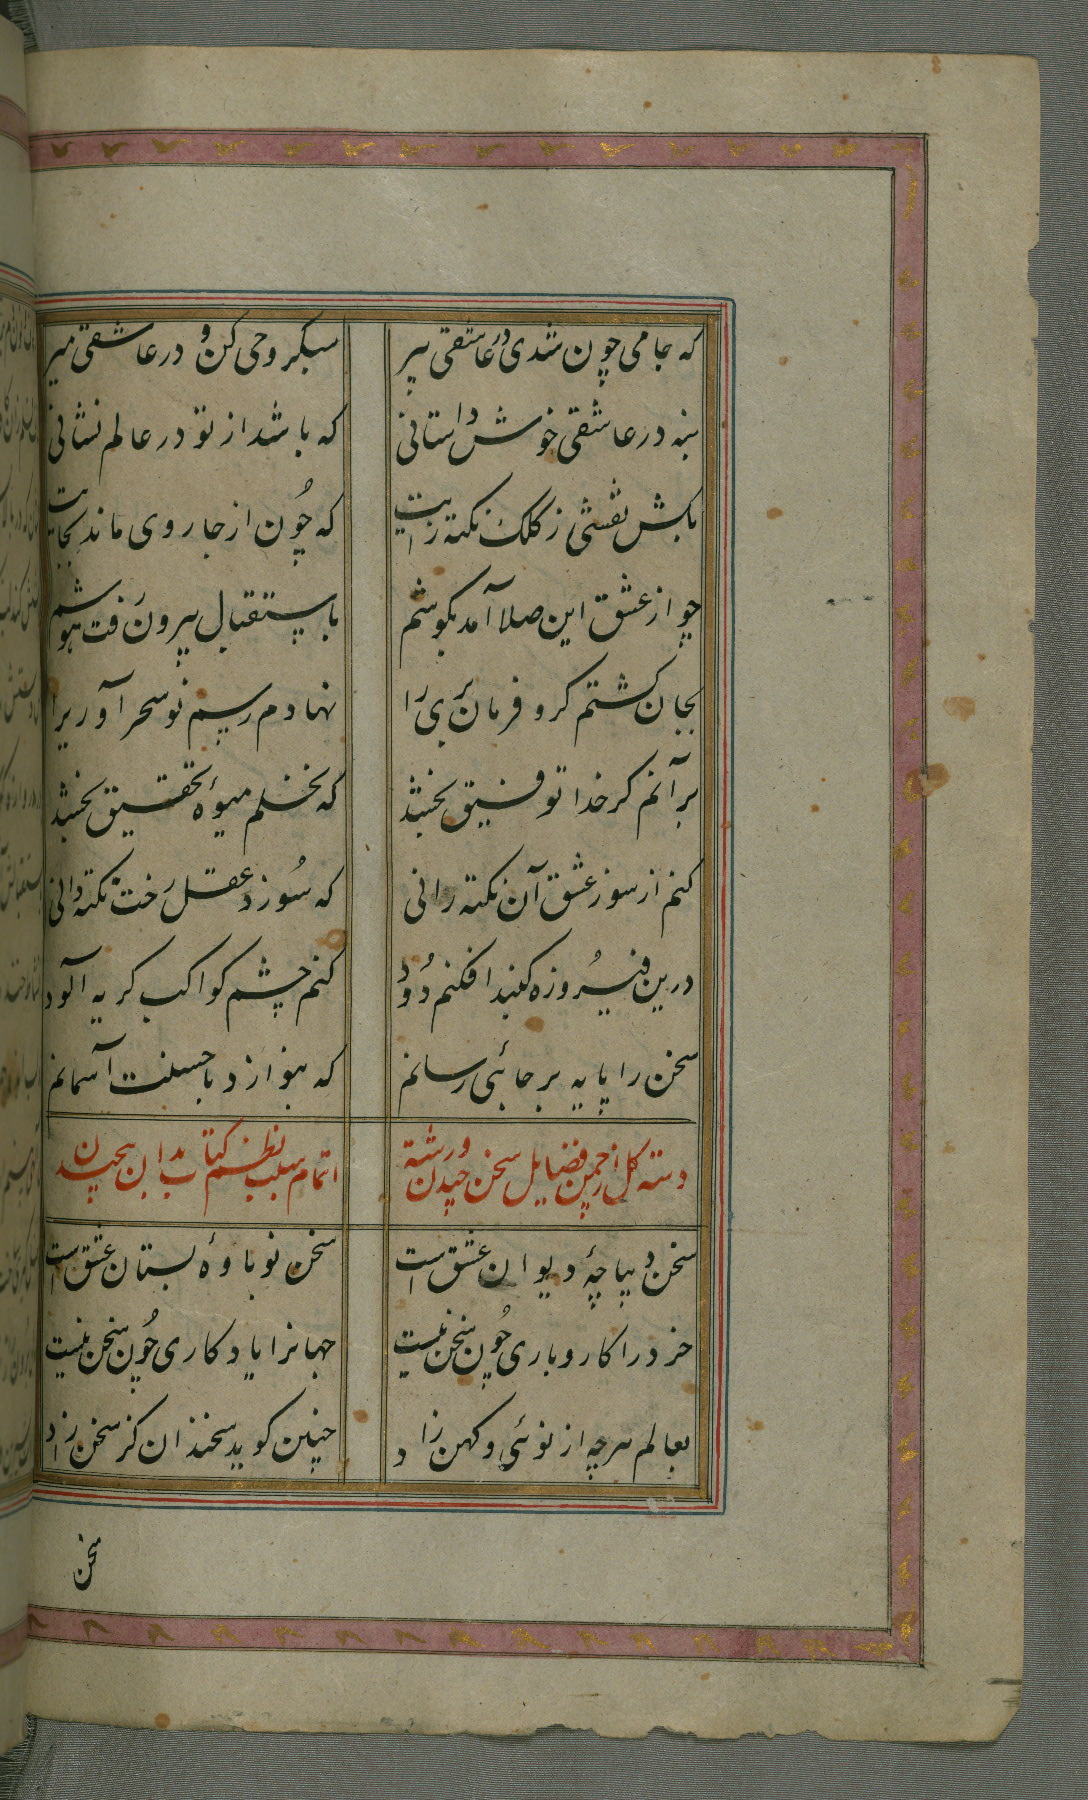 که جامی چون شدی در عاشقی پیر سبکروحی کن و در عاشقی میر
بنه در عاشقی خوش داستانی که باشد از تو در عالم نشانی
بکش نقشی ز کلک نکته زایت که چون از جا روی ماند بجایت
چو از عشق این صلا آمد بکوشم باستقبال بیرون رفت هوشم
بجان کشتم کرو فرمان بری را نهادم رسم نو سحر آوری را
برآنم کر خدا توفیق بخشد که نخلم میوهٔ تحقیق بخشد
کنم از سوز عشق آن نکته رانی که سوزد عقل رخت نکته دانی
درین فیروزه کنبد افکنم دود کنم چشم کواکب کریه آلود
سخن را پایه بر جائی رسانم که بنوازد باحسنت آسمانم
دسته کل از چمن فضایل سخن چیدن و رشته اتمام سبب نظم کتاب بدان پیچیدن
سخن دیباچهٔ دیوان عشق است سخن نوباوهٔ بستان عشق است
خرد را کار و باری چون سخن نیست جهانرا یادکاری چون سخن نیست
بعالم هرچه از نوئی و کهن زاد چنین کوید سخندان کز سخن زاد
سخن